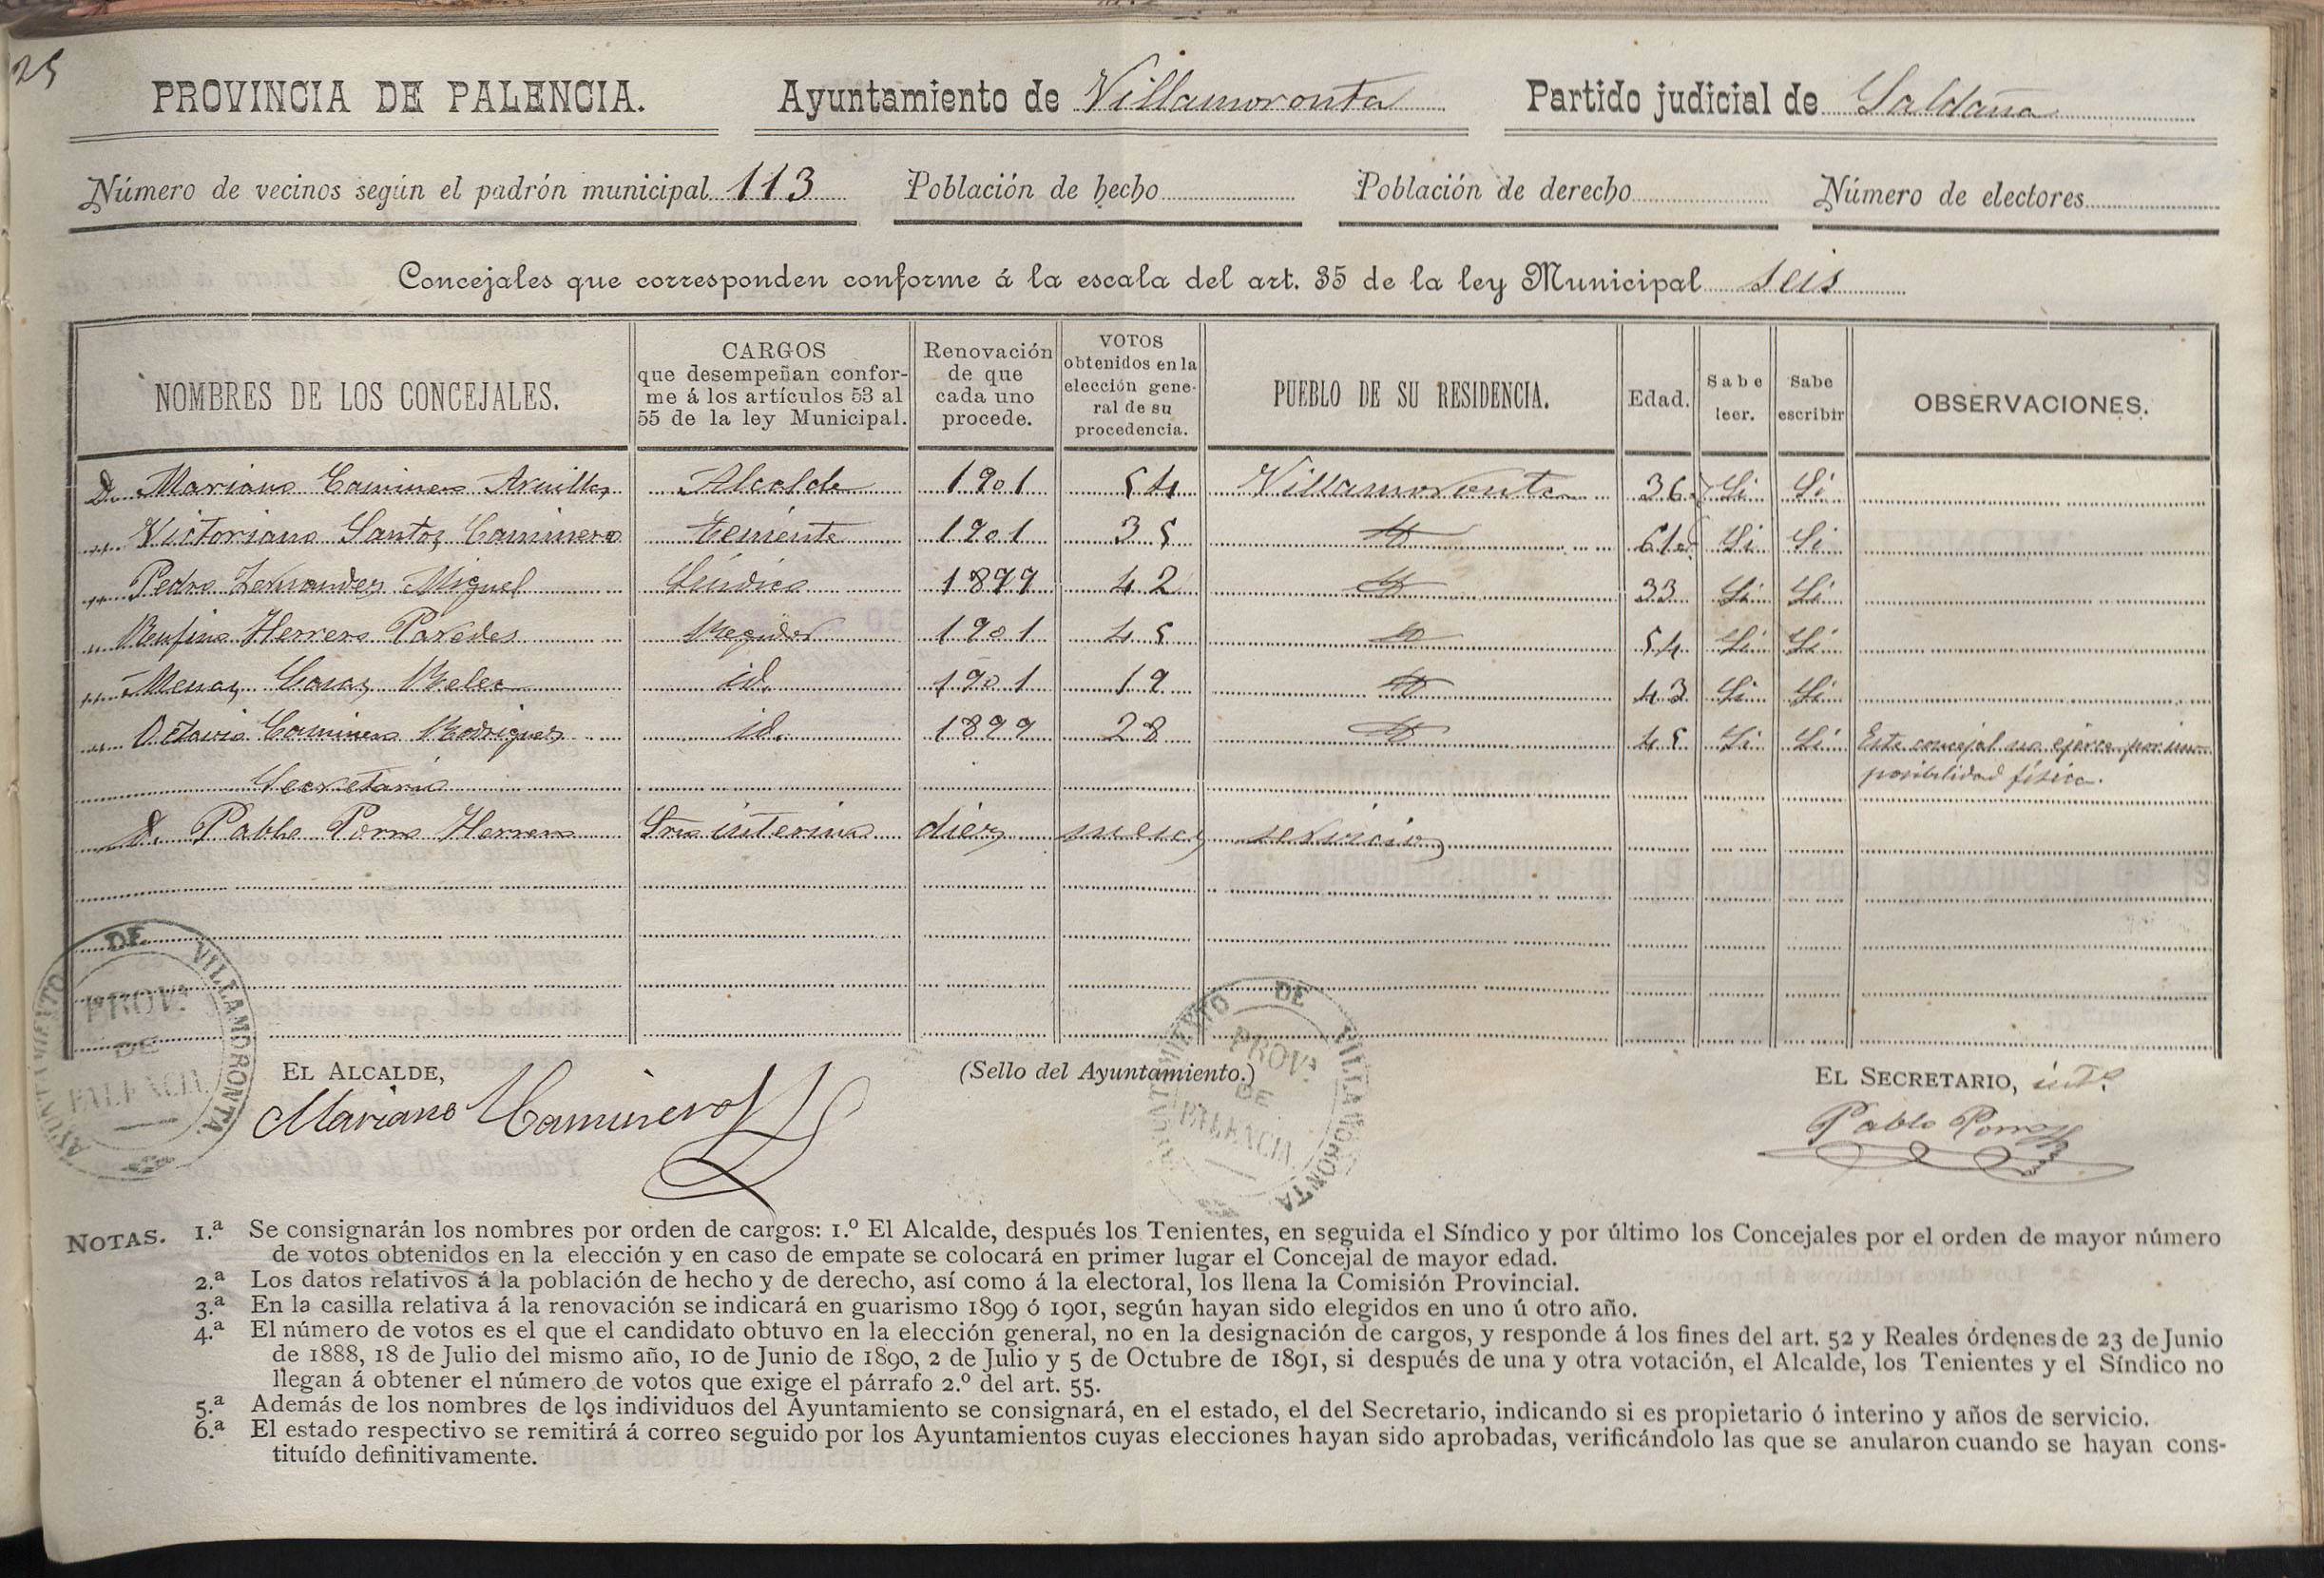 25
PROVINCIA DE PALENCIA. Ayuntamiento de Villamoronta Partido judicial de Saldaña
Número de vecinos según el padrón municipal 113 Población de hecho Población de derecho Número de electores
Concejales que corresponden conforme á la escala del art. 35 de la ley Municipal seis
NOMBRES DE LOS CONCEJALES. CARGOS que desempeñan confor-me á los artículos 53 al 55 de la ley Municipal. Renovación de que cada uno procede. VOTOS obtenidos en la elección gene-ral de su procedencia. PUEBLO DE SU RESIDENCIA. Edad. Sabe leer. Sabe escribir OBSERVACIONES.
D. Mariano Caminero Arnillas Alcalde 1901 54 Villamoronta 36 Si Si
" Victoriano Santos Caminero Teniente 1901 35 61 Si Si
" Pedro Fernandez Miguel Síndico 1899 42 33 Si Si
" Rufino Herrero Paredes Regidor 1901 45 54 Si Si
" Menas Casas id. 1901 19 43 Si Si
" Octavio Caminero Rodriguez id. 1899 28 45 Si Si Este concejal no ejerce por im-
posibilidad física.
Secretario
D. Pablo Porro Herrero Srio interino diez meses servicio
AYUNTAMIENTO DE VILLAMORONTA
PROVª DE PALENCIA
EL ALCALDE, (Sello del Ayuntamiento.) EL SECRETARIO, intº
Mariano Caminero Pablo Porro
AYUNTAMIENTO DE VILLAMORONTA
PROVª DE PALENCIA
NOTAS. 1.ª Se consignarán los nombres por orden de cargos: 1.º El Alcalde, después los Tenientes, en seguida el Síndico y por último los Concejales por el orden de mayor número
de votos obtenidos en la elección y en caso de empate se colocará en primer lugar el Concejal de mayor edad.
2.ª Los datos relativos á la población de hecho y de derecho, así como á la electoral, los llena la Comisión Provincial.
3.ª En la casilla relativa á la renovación se indicará en guarismo 1899 ó 1901, según hayan sido elegidos en uno ú otro año.
4.ª El número de votos es el que el candidato obtuvo en la elección general, no en la designación de cargos, y responde á los fines del art. 52 y Reales órdenes de 23 de Junio
de 1888, 18 de Julio del mismo año, 10 de Junio de 1890, 2 de Julio y 5 de Octubre de 1891, si después de una y otra votación, el Alcalde, los Tenientes y el Síndico no
llegan á obtener el número de votos que exige el párrafo 2.º del art. 55.
5.ª Además de los nombres de los individuos del Ayuntamiento se consignará, en el estado, el del Secretario, indicando si es propietario ó interino y años de servicio.
6.ª El estado respectivo se remitirá á correo seguido por los Ayuntamientos cuyas elecciones hayan sido aprobadas, verificándolo las que se anularon cuando se hayan cons-
tituído definitivamente.